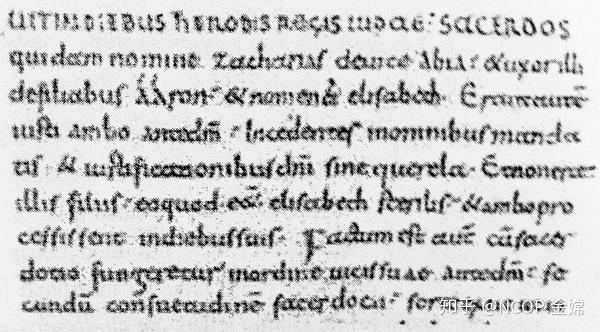 UITINDIEBUS hERODIS REGIS IUDAE: SACERDOS
quidam nomine zacharias deuice abia· & uxor illi
defiliabus AAron· & nomen ei elisabeth· Erantautē
iusti ambo antedm̄· Incedentes inomnibus manda
tis· & iustificationibus dnī sine querela· Etnonerat
illis filius· eoquod eēt elisabeth sterilis· & ambo pro
cessissent indiebus suis· Factum est autē cū sacer
dotio fungeretur inordine uicis suae antedm̄· se
cundū consuetudinē sacerdotii·
知乎 @NCOP 金嫦